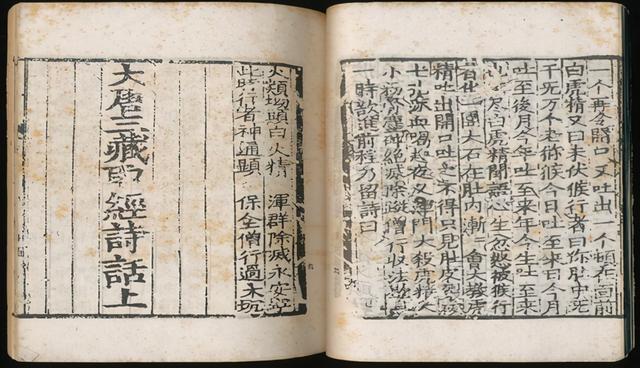 一个再令開口又吐出一个頓在面前
白虎精又曰未伏猴行者曰你肚中无
千无万个老獼猴今日吐至來日今月
吐至後月今年吐至來年今生吐至來
白虎精聞語心生忿怒被猴行
者化一團大石在肚內漸〻會大教虎
精吐出開口吐之不得只見肚皮裂破
七孔流血喝起夜叉渾門大殺虎精大
小粉骨塵碎絕滅除蹤僧行收法歇息
一時欲進前程乃留詩曰
火類坳頭白火精 渾群除滅永安寧
此時行者神通顯 保全僧行過大坑
大唐三藏取經詩話上